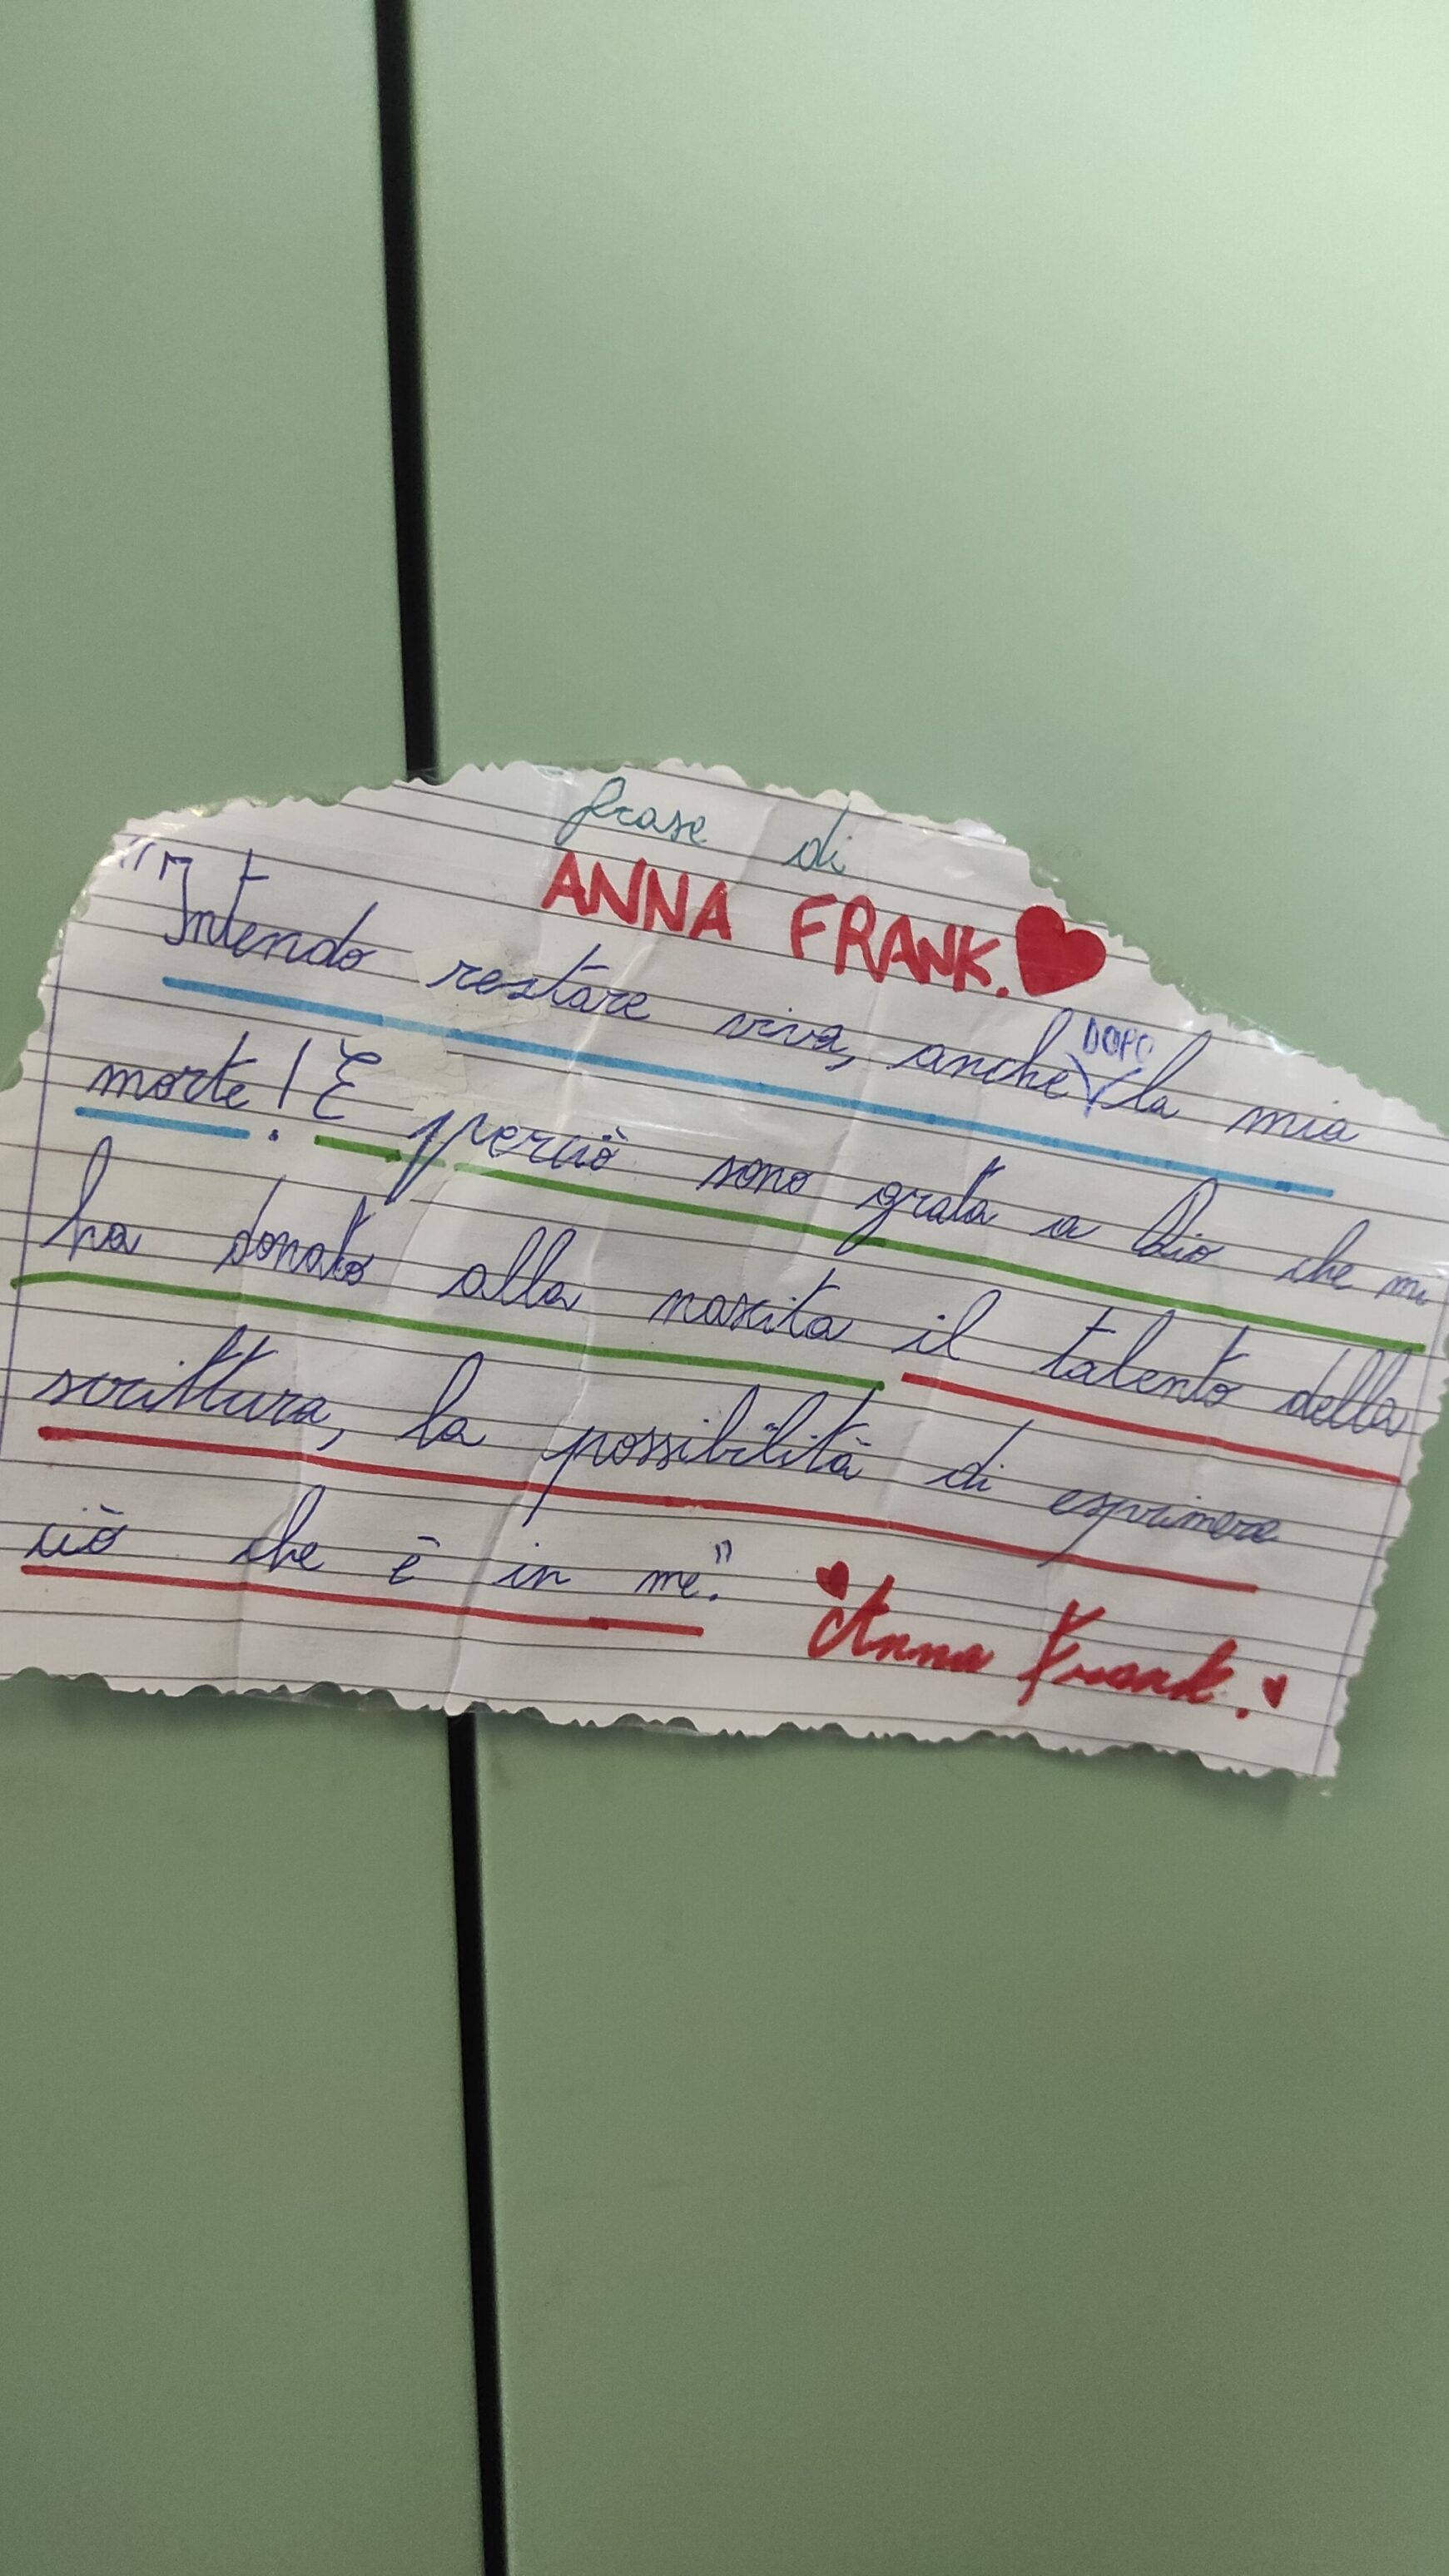 frase di
ANNA FRANK.
"Intendo restare viva, anche DOPO la mia
morte! E perciò sono grata a Dio che mi
ha donato alla nascita il talento della
scrittura, la possibilità di esprimere
ciò che è in me."
Anna Frank.